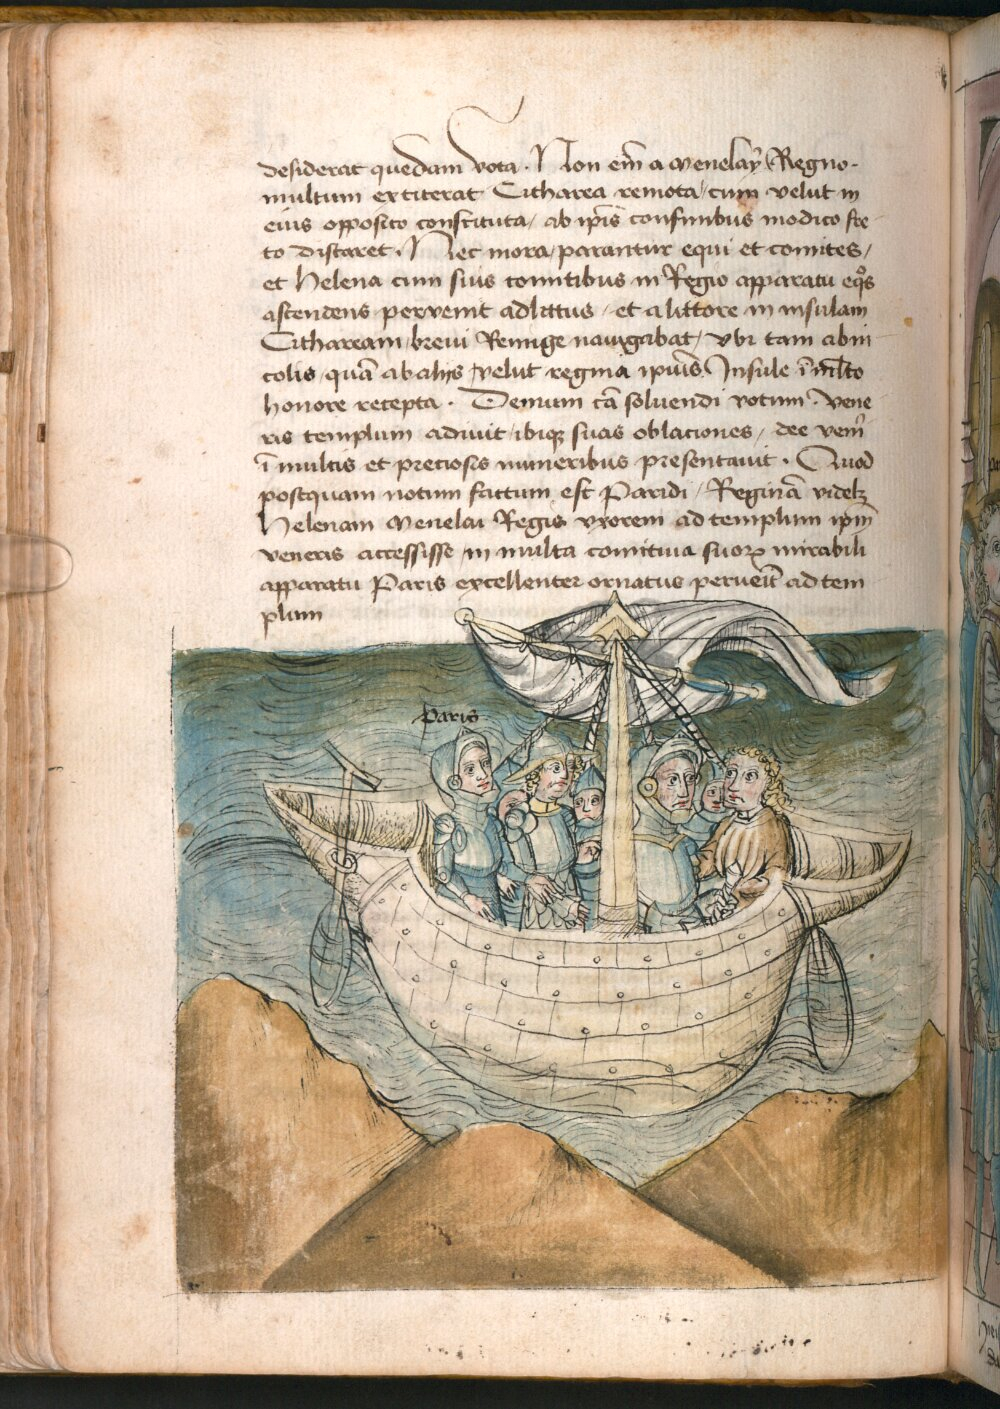 desiderat quedam vota . Non em̄ a menelaÿ Regno-
multum extiterat Citharea remota / cum velut in
eius opposito constituta / ab ip̄is confinibus modico fre
to distaret . Nec mora / parantur equi et comites /
et Helena cum suis comitibus in Regio apparatu eq̄s
ascendens pervenit ad littus / et a littore in insulam
Cithaream brevi Remige navigabat / vbi tam ab in
colis / quā ab aliis / velut regina ip̄ius Insule ī ml̄to
honore recepta . Demum cā solvendi votum . vene
ris templum adivit / ibiq; suas oblaciones / dee ven̄i
ī multis et preciosis muneribus presentavit . Quod
postquam notum factum est Paridi / Reginā videlz
Helenam Menelai Regis vxorem ad templum ip̄m
veneris accessisse / in multa comitiva suoꝝ mirabili
apparatu Paris excellenter ornatus perveit̄ ad tem
plum
Paris